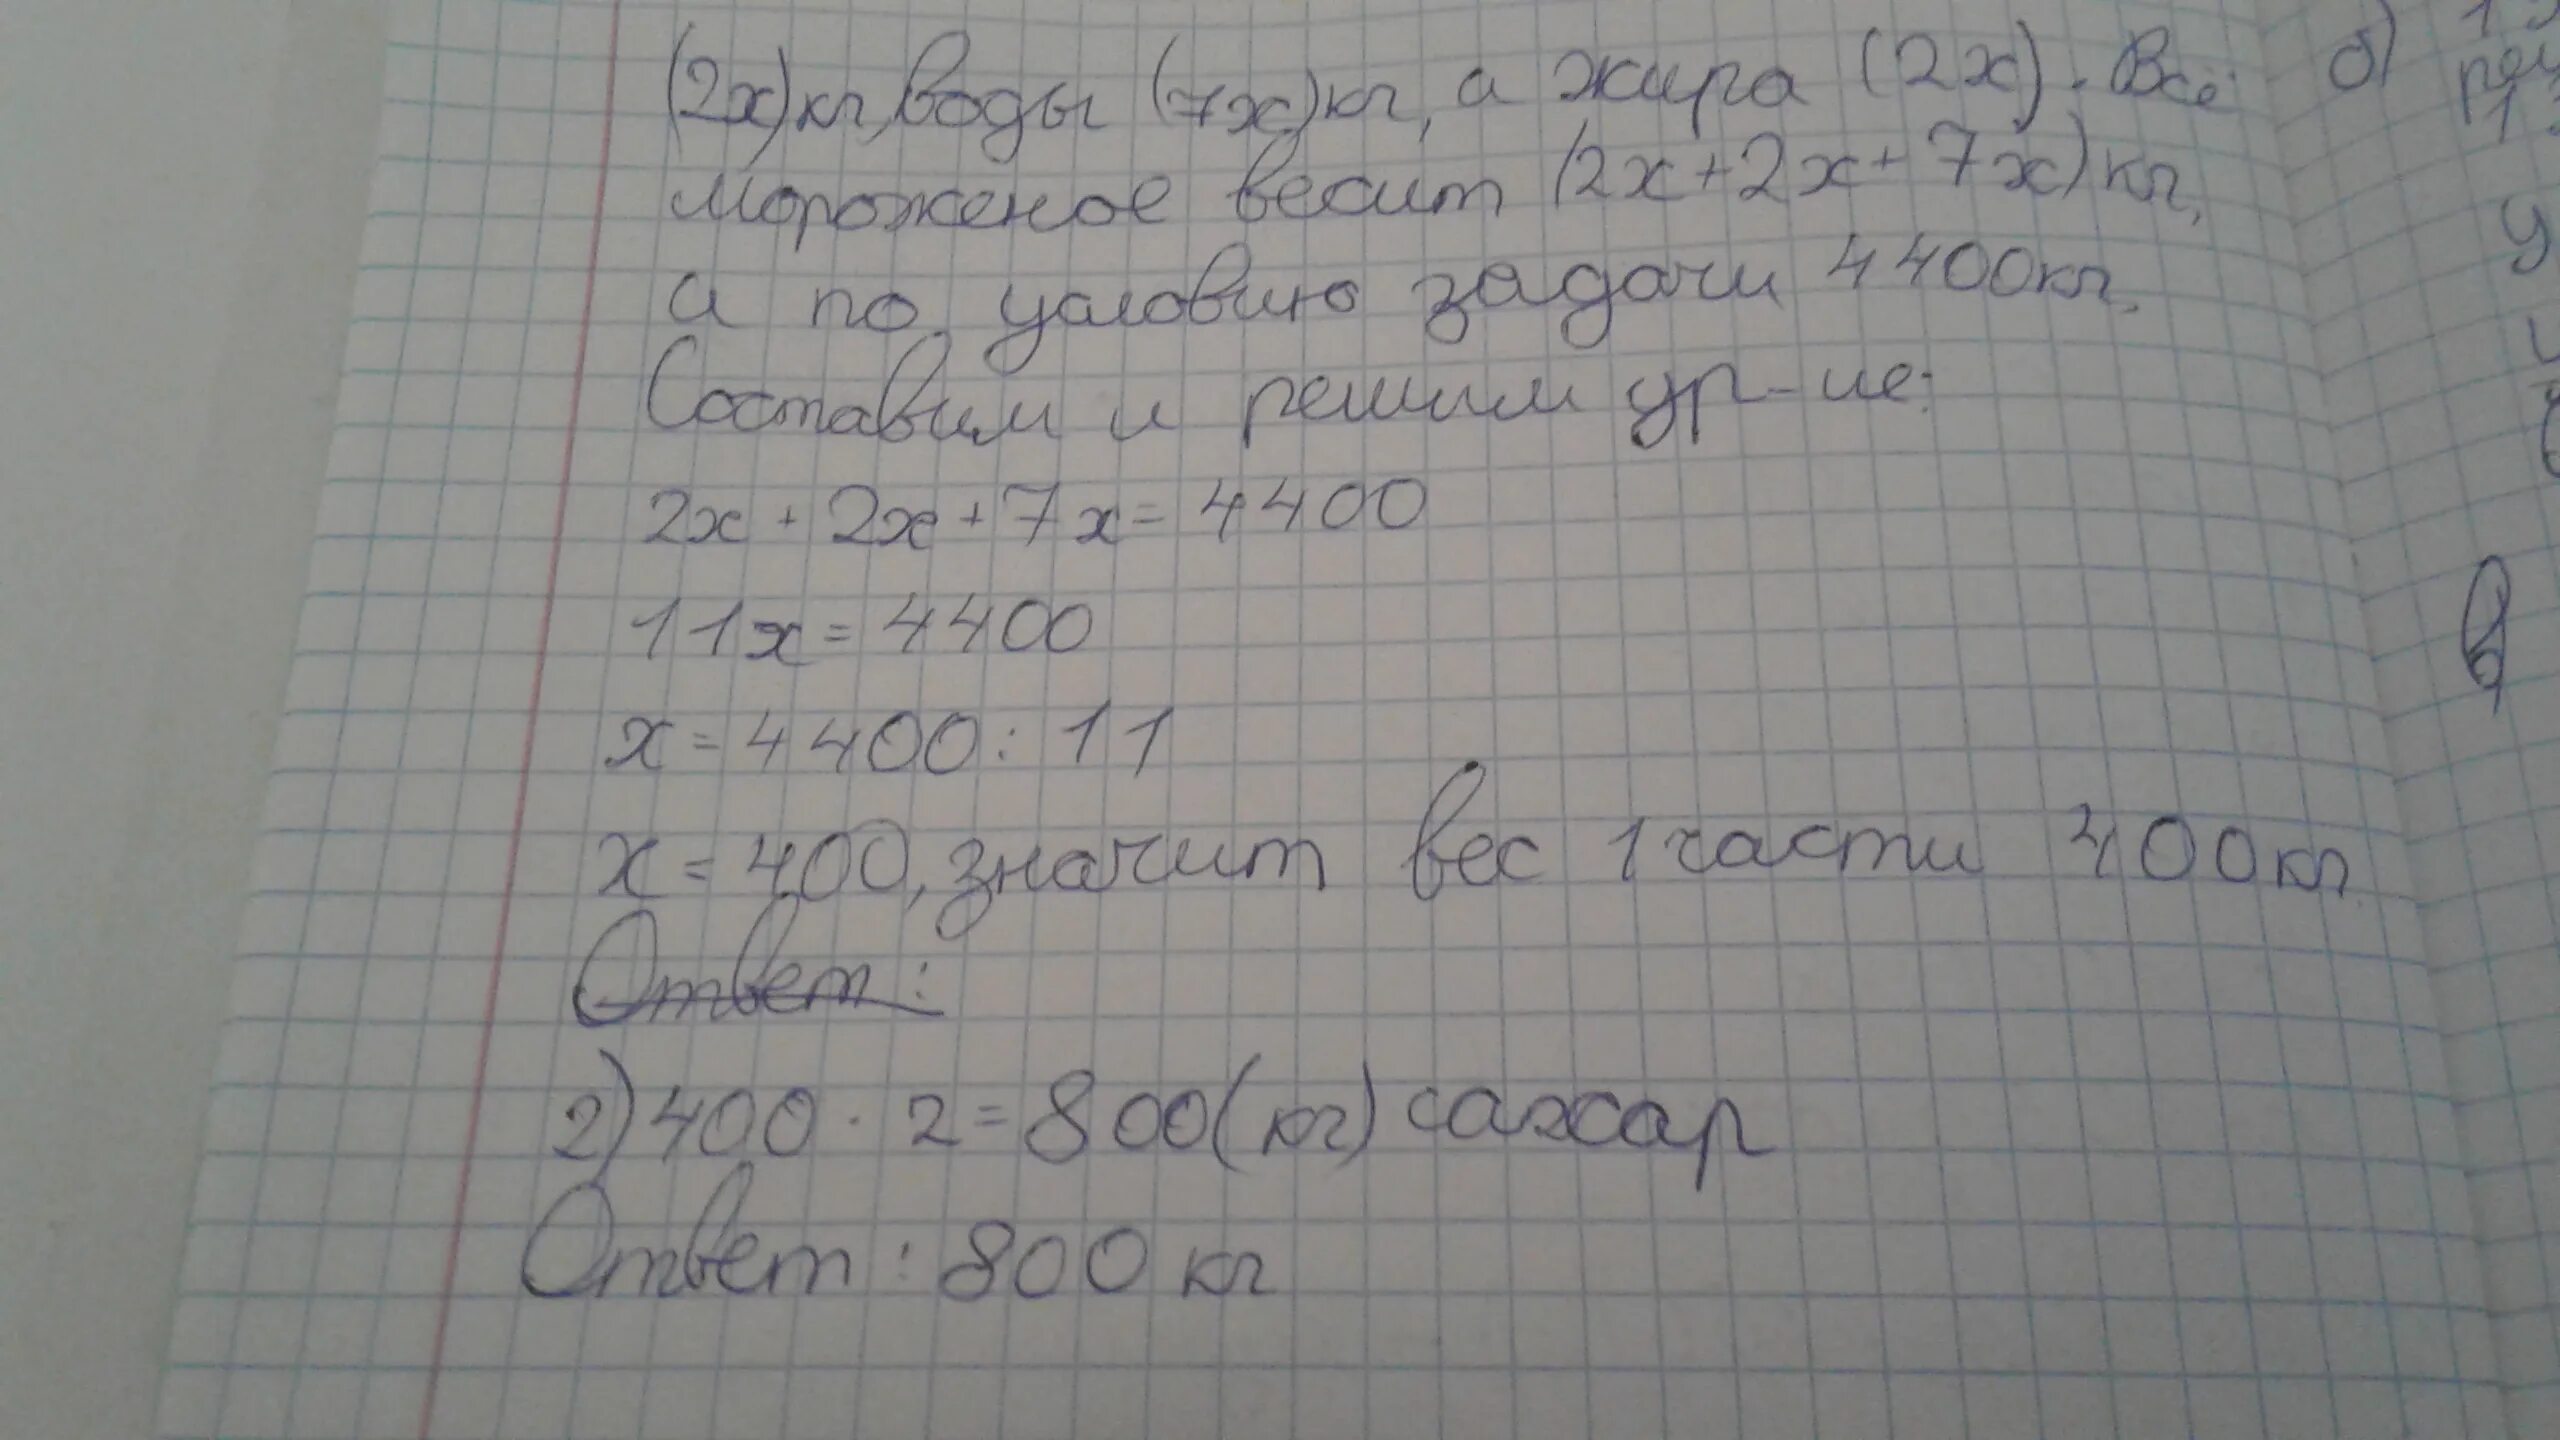 (2х)кг, воды (7х)кг, а жира (2х). Всё
мороженое весит (2х+2х+7х)кг,
а по условию задачи 4400кг.
Составим и решим ур-ие:
2х + 2х + 7х = 4400
11х = 4400
х = 4400 : 11
х = 400, значит вес 1 части 400кг
Ответ:
2) 400 · 2 = 800 (кг) сахар
Ответ: 800 кг
б)